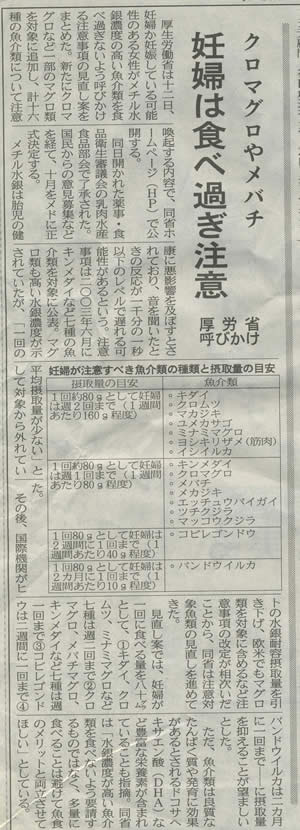 クロマグロやメバチ
妊婦は食べ過ぎ注意
厚労省
呼びかけ
厚生労働省は十二日、
妊婦か妊娠している可能
性のある女性がメチル水
銀濃度の高い魚介類を食
べ過ぎないよう呼びかけ
る注意事項の見直し案を
まとめた。新たにクロマ
グロなど一部のマグロ類
を対象に追加し、計十六
種の魚介類について注意
喚起する内容で、同省ホ
ームページ(HP)で公
開する。
同日開かれた薬事・食
品衛生審議会の乳肉水産
食品部会で了承された。
国民からの意見募集など
を経て、十月をメドに正
式決定する。
メチル水銀は胎児の健
康に悪影響を及ぼすとさ
れており、音を聞いたと
きの反応が一千分の一秒
以下のレベルで遅れる可
能性があるという。注意
事項は二〇〇三年六月に
キンメダイなど七種の魚
介類を対象に公表。マグ
ロ類も高い水銀濃度が示
されていたが、「一回の
平均摂取量が少ない」と
して対象から外れてい
た。
その後、国際機関がヒ
トの水銀耐容摂取量を引
き下げ、欧米でもマグロ
類を対象に含めるなど注
意事項の改定が相次いだ
ことから、同省は注意対
象魚類の見直しを進めて
きた。
見直し案では、妊婦が
一回に食べる量を八十㌘
として、①キダイ、クロ
ムツ、ミナミマグロなど
七種は週二回まで②クロ
マグロ、メバチマグロ、
キンメダイなど七種は週
一回まで③コビレゴンド
ウは二週間に一回まで④
バンドウイルカは二カ月
に一回まで―に摂取量
を抑えることが望ましい
とした。
ただ、魚介類は良質な
たんぱく質や発育に効果
があるとされるドコサヘ
キサエン酸(DHA)な
ど豊富な栄養素が含まれ
ていることも指摘。同省
は「水銀濃度が高い魚介
類を食べないよう要請す
るものではなく、多量に
食べることは避けて魚食
のメリットと両立させて
ほしい」としている。
妊婦が注意すべき魚介類の種類と摂取量の目安
摂取量の目安
魚介類
1回約80gとして妊婦
は週2回まで(1週間
あたり160g程度)
◦キダイ
◦クロムツ
◦マカジキ
◦ユメカサゴ
◦ミナミマグロ
◦ヨシキリザメ(筋肉)
◦イシイルカ
1回約80gとして妊婦
は週1回まで(1週間
あたり80g程度)
◦キンメダイ
◦クロマグロ
◦メバチ
◦メカジキ
◦エッチュウバイガイ
◦ツチクジラ
◦マッコウクジラ
1回80gとして妊婦は
2週間に1回まで(1
週間あたり40g程度)
◦コビレゴンドウ
1回80gとして妊婦は
2カ月に1回まで(1
週間あたり10g程度)
◦バンドウイルカ